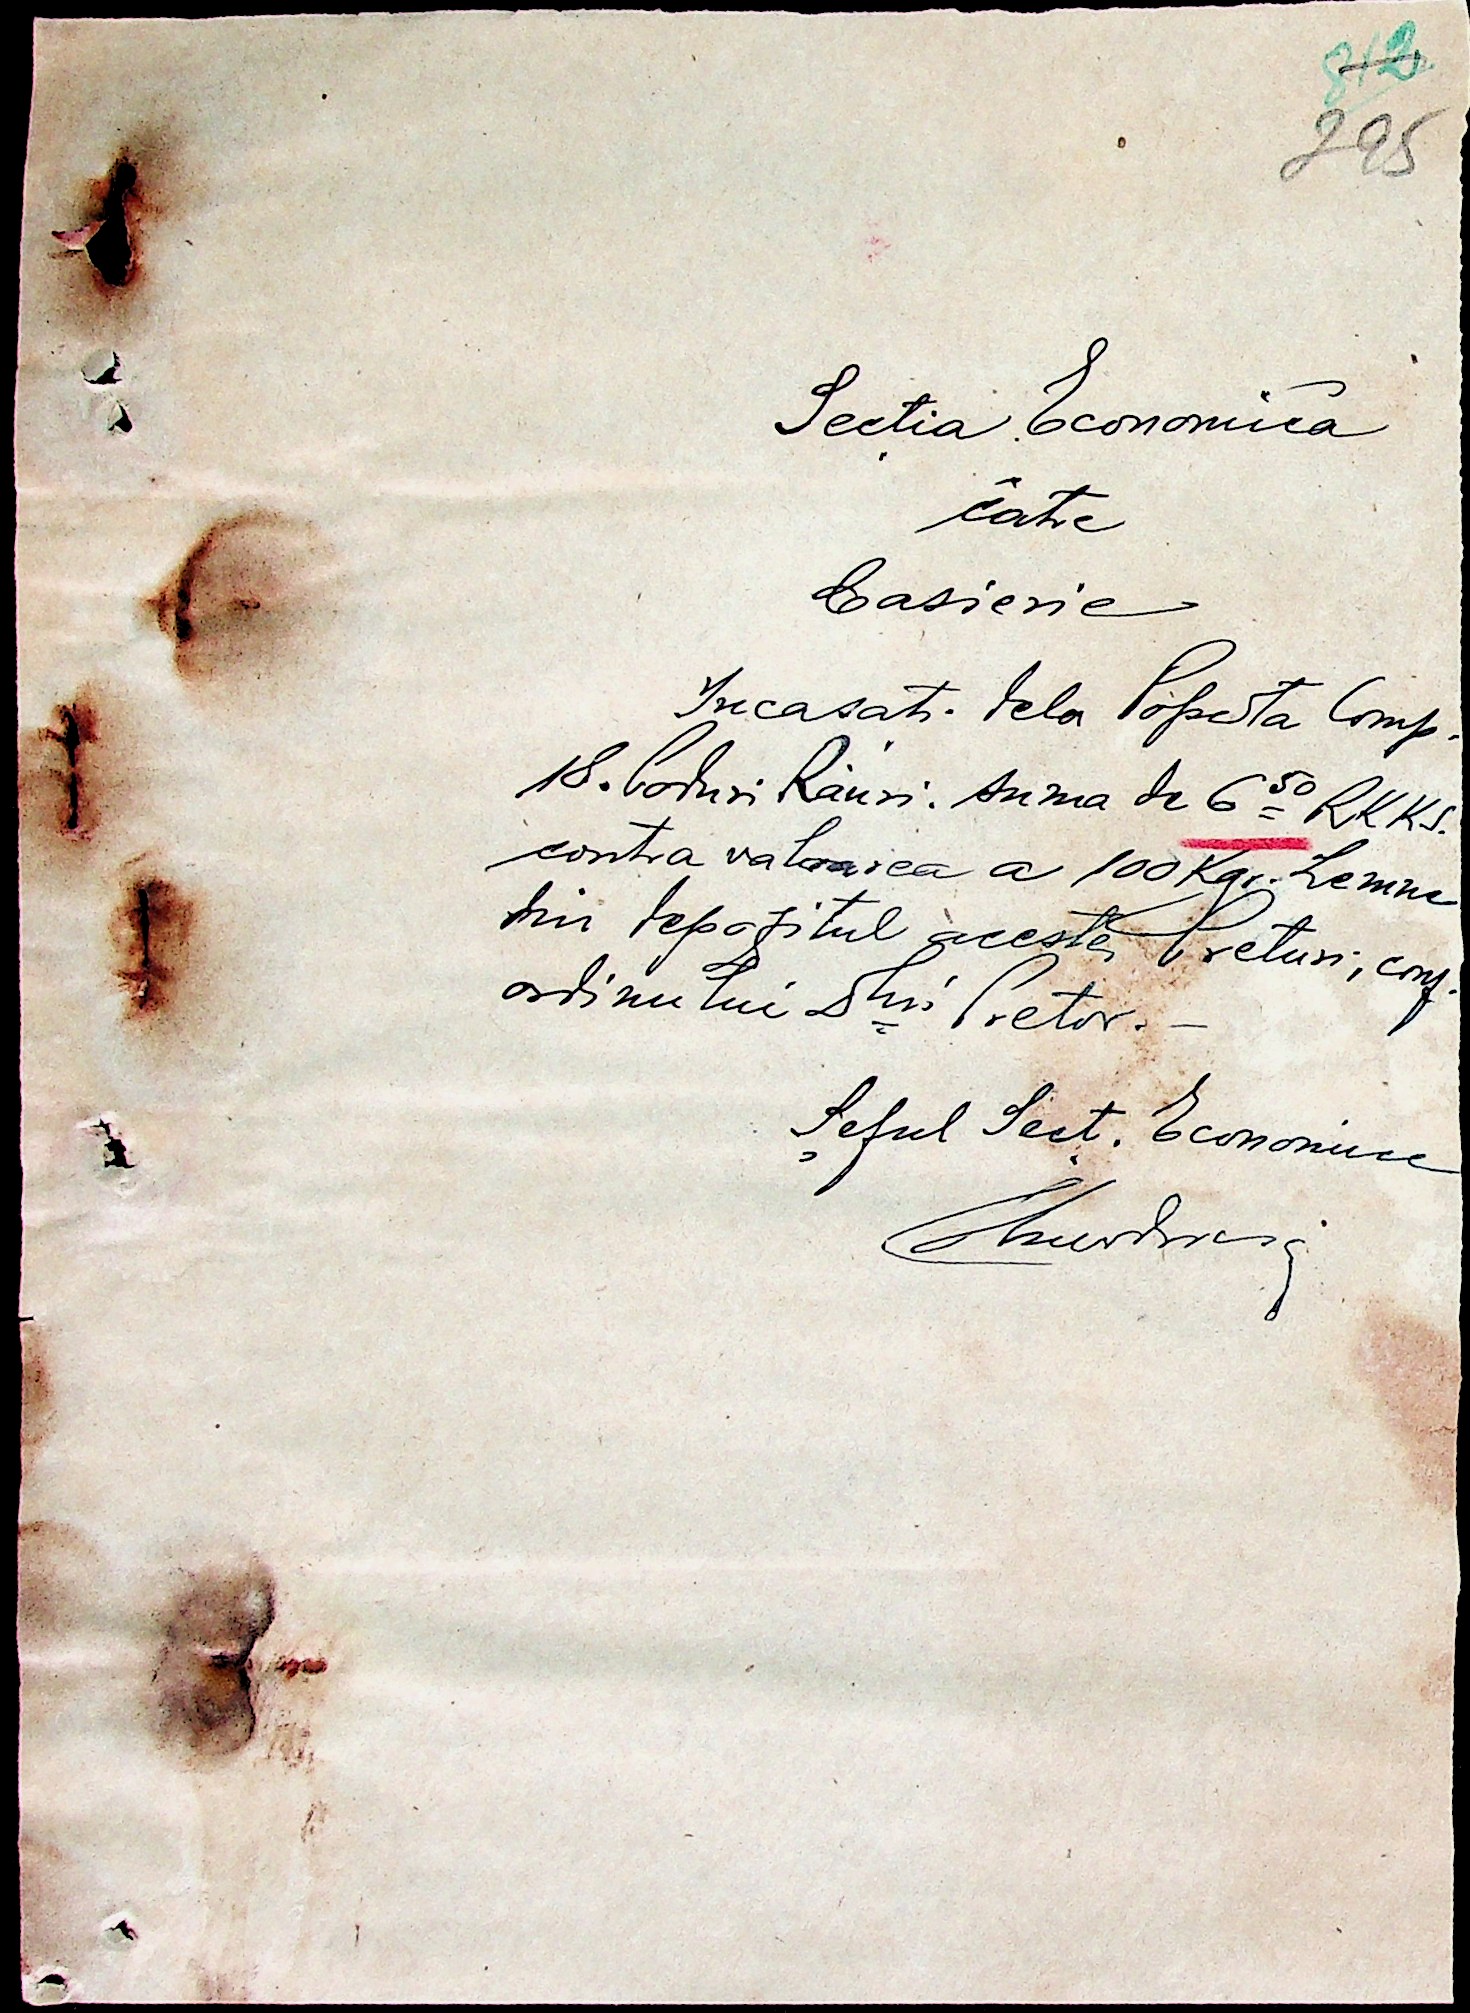 812
295
Secția Economică
către
Casierie
Incasati. dela Popota Comp.
18. Poduri Râuri. suma de 6 50 RKKS.
contra valoarea a 100 Kgr. Lemne
din depozitul acestei Preturi, conf.
ordinului Dlui Pretor. —
Șeful Secț. Economice